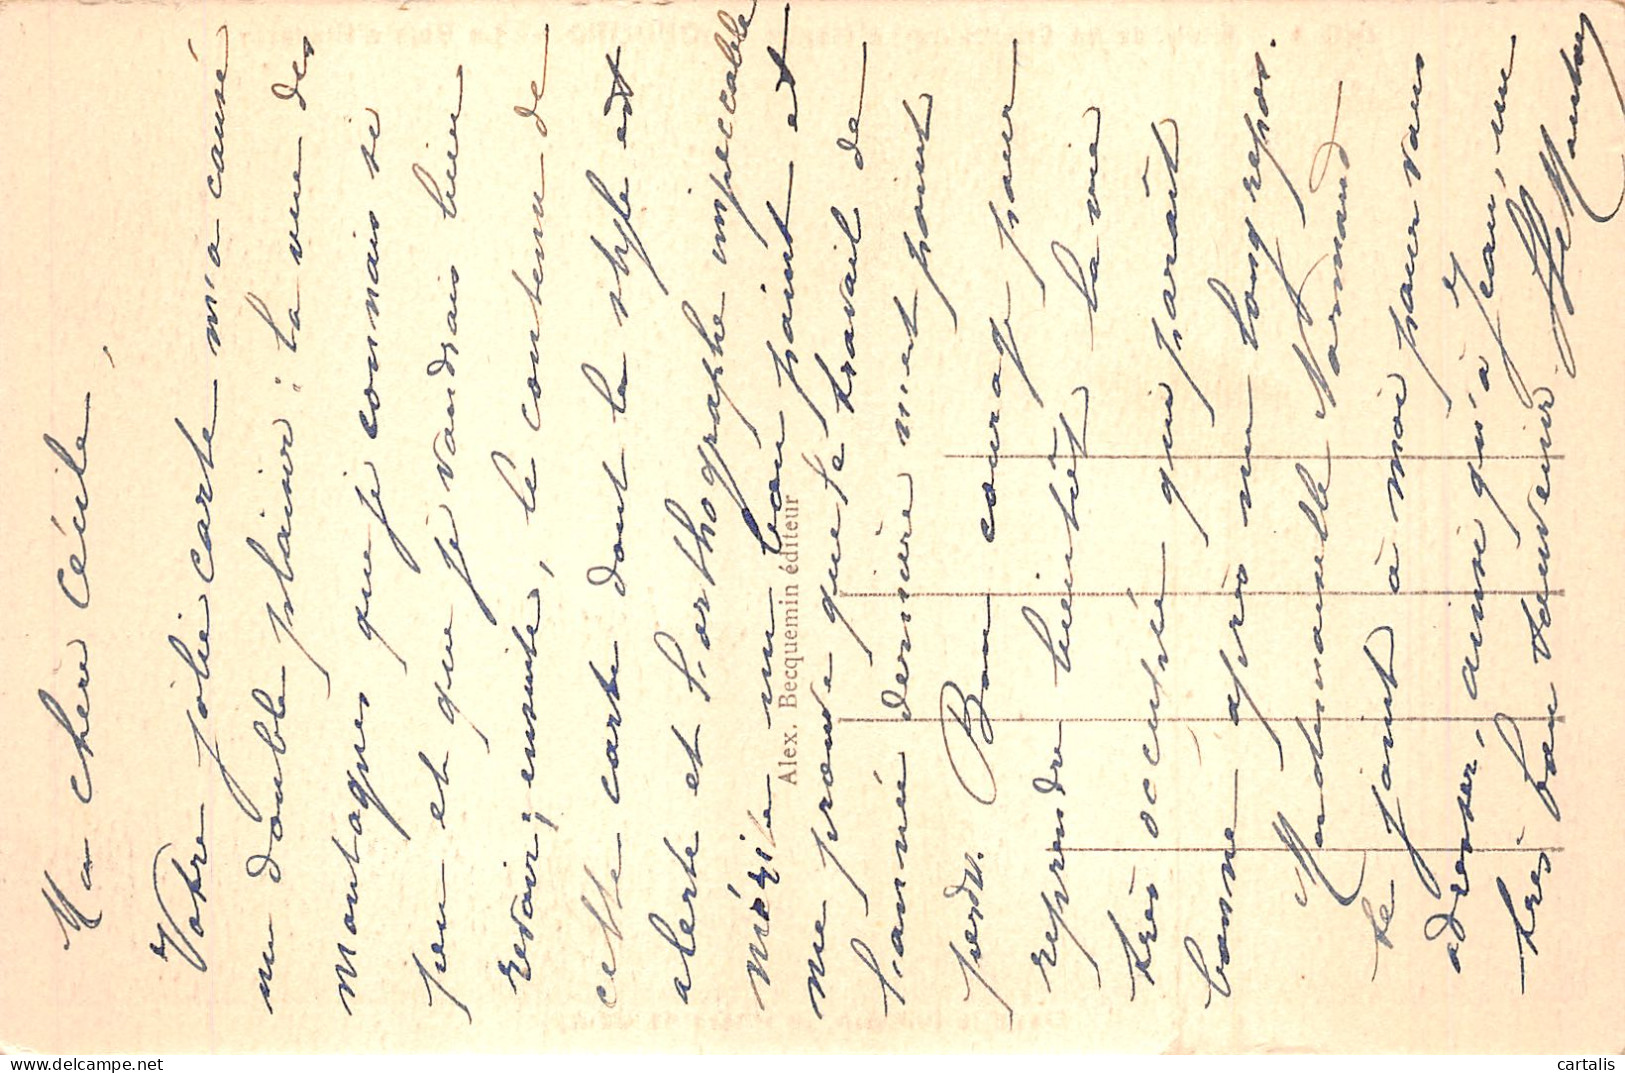 Ma chère Cécile,
Votre jolie carte m'a causé
un double plaisir : la vue des
montagnes que je connais si
peu et que je voudrais bien
revoir ; ensuite, le contenu de
cette carte dont le style est
alerte et l'orthographe impeccable
mérite un bon point et
me prouve que le travail de
l'année dernière n'est point
perdu. Bon courage pour
reprendre bientôt la vie
très occupée qui paraît
bonne après un long repos.
Mademoiselle Normand
se joint à moi pour vous
adresser, ainsi qu'à Jean, un
très bon souvenir.
Alex. Becquemin éditeur
cartalis